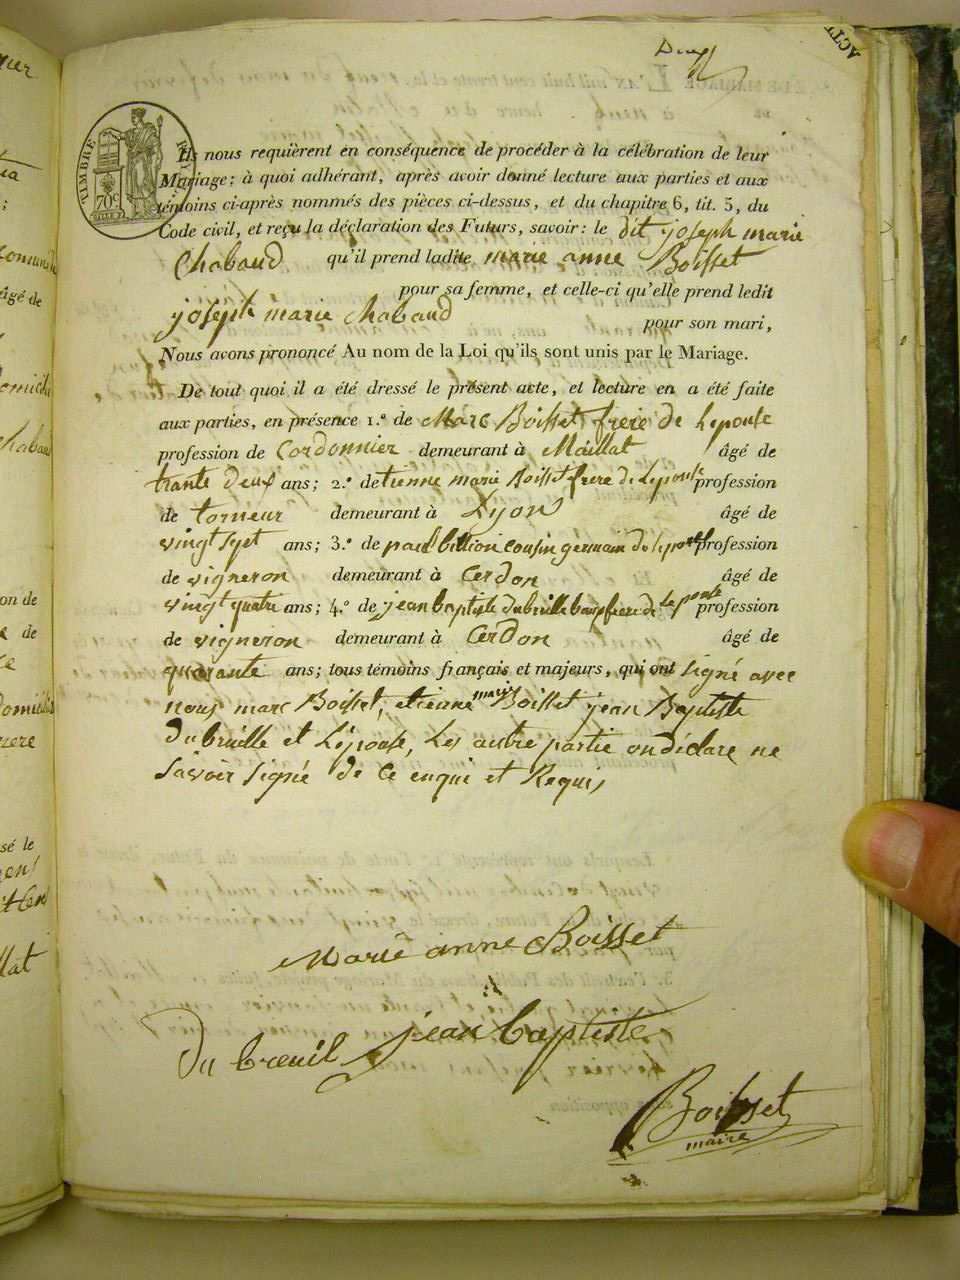 ACTE
TIMBRE ROYAL
70c
Ils nous requièrent en conséquence de procéder à la célébration de leur
Mariage; à quoi adhérant, après avoir donné lecture aux parties et aux
témoins ci-après nommés des pièces ci-dessus, et du chapitre 6, tit. 5, du
Code civil, et reçu la déclaration des Futurs, savoir: le dit joseph marie
Chabaud qu'il prend ladite marie anne Boisset
pour sa femme, et celle-ci qu'elle prend ledit
joseph marie chabaud pour son mari,
Nous avons prononcé Au nom de la Loi qu'ils sont unis par le Mariage.
De tout quoi il a été dressé le présent acte, et lecture en a été faite
aux parties, en présence 1.º de Marc Boisset frere de Lepouse
profession de Cordonnier demeurant à Maillat âgé de
trante deux ans; 2.º detienne marie Boisset frere de Lepouse profession
de torneur demeurant à Lyon âgé de
vingt sept ans; 3.º de paul billion cousin germain de lepouse profession
de vigneron demeurant à Cerdon âgé de
vingt quatre ans; 4.º de jean baptiste dubruille beaufrere de Lepouse profession
de vigneron demeurant à Cerdon âgé de
quarante ans; tous témoins français et majeurs, qui ont signé avec
nous marc Boisset, etienne marie Boisset jean Baptiste
dubruille et Lépouse, Les autre partie on déclare ne
savoir signé de ce enqui et Requis
marie anne Boisset
du breuil jean baptiste
Boisset
maire